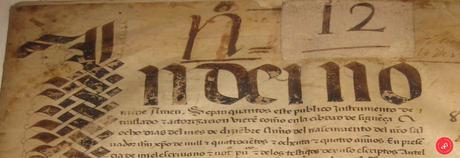 Nº 12
In dei no
mine Amen. Sepan quantos este publico Instrumento de
traslado e autorizaçion vieren como en la cibdad de siguença A
ocho dias del mes de diziēbre Año del nascimento del nro sal
uador ihu xpo de mill e quatroçiētos e ochenta e años. En presē
de mi el escriuano e not pu e de los testigos de yuso escriptos